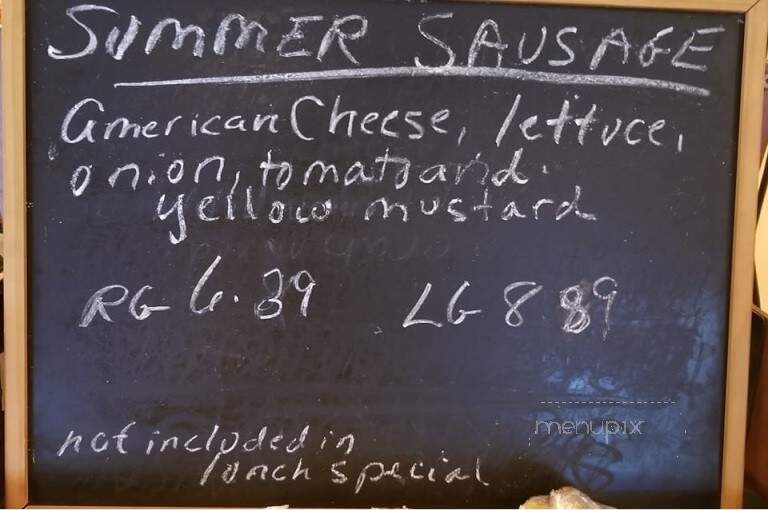 SUMMER SAUSAGE
American Cheese, lettuce,
onion, tomato and
yellow mustard
RG 6.39 LG 8 89
not included in
lunch special
menupix